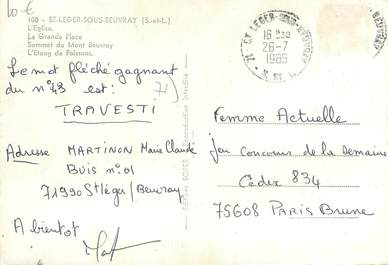 10€
100 - ST-LEGER-SOUS-BEUVRAY (S.-et-L.)
L'Eglise.
La Grande Place
Sommet du Mont Beuvray
L'Etang de Poissons.
71 ST LEGER-SOUS-BEUVRAY
16 H 30
26-7
1985
S. ET L.
BEUVRAY
Le mot fléché gagnant
du n° 43 est : 71)
TRAVESTI
Adresse MARTINON Marie Claude
BUIS n° 01
71990 St Léger / Beuvray
A bientot
Reproduction Interdite
Femme Actuelle
Jeu Concours de la Semaine
Cedex 834
75608 PARIS Brune
€